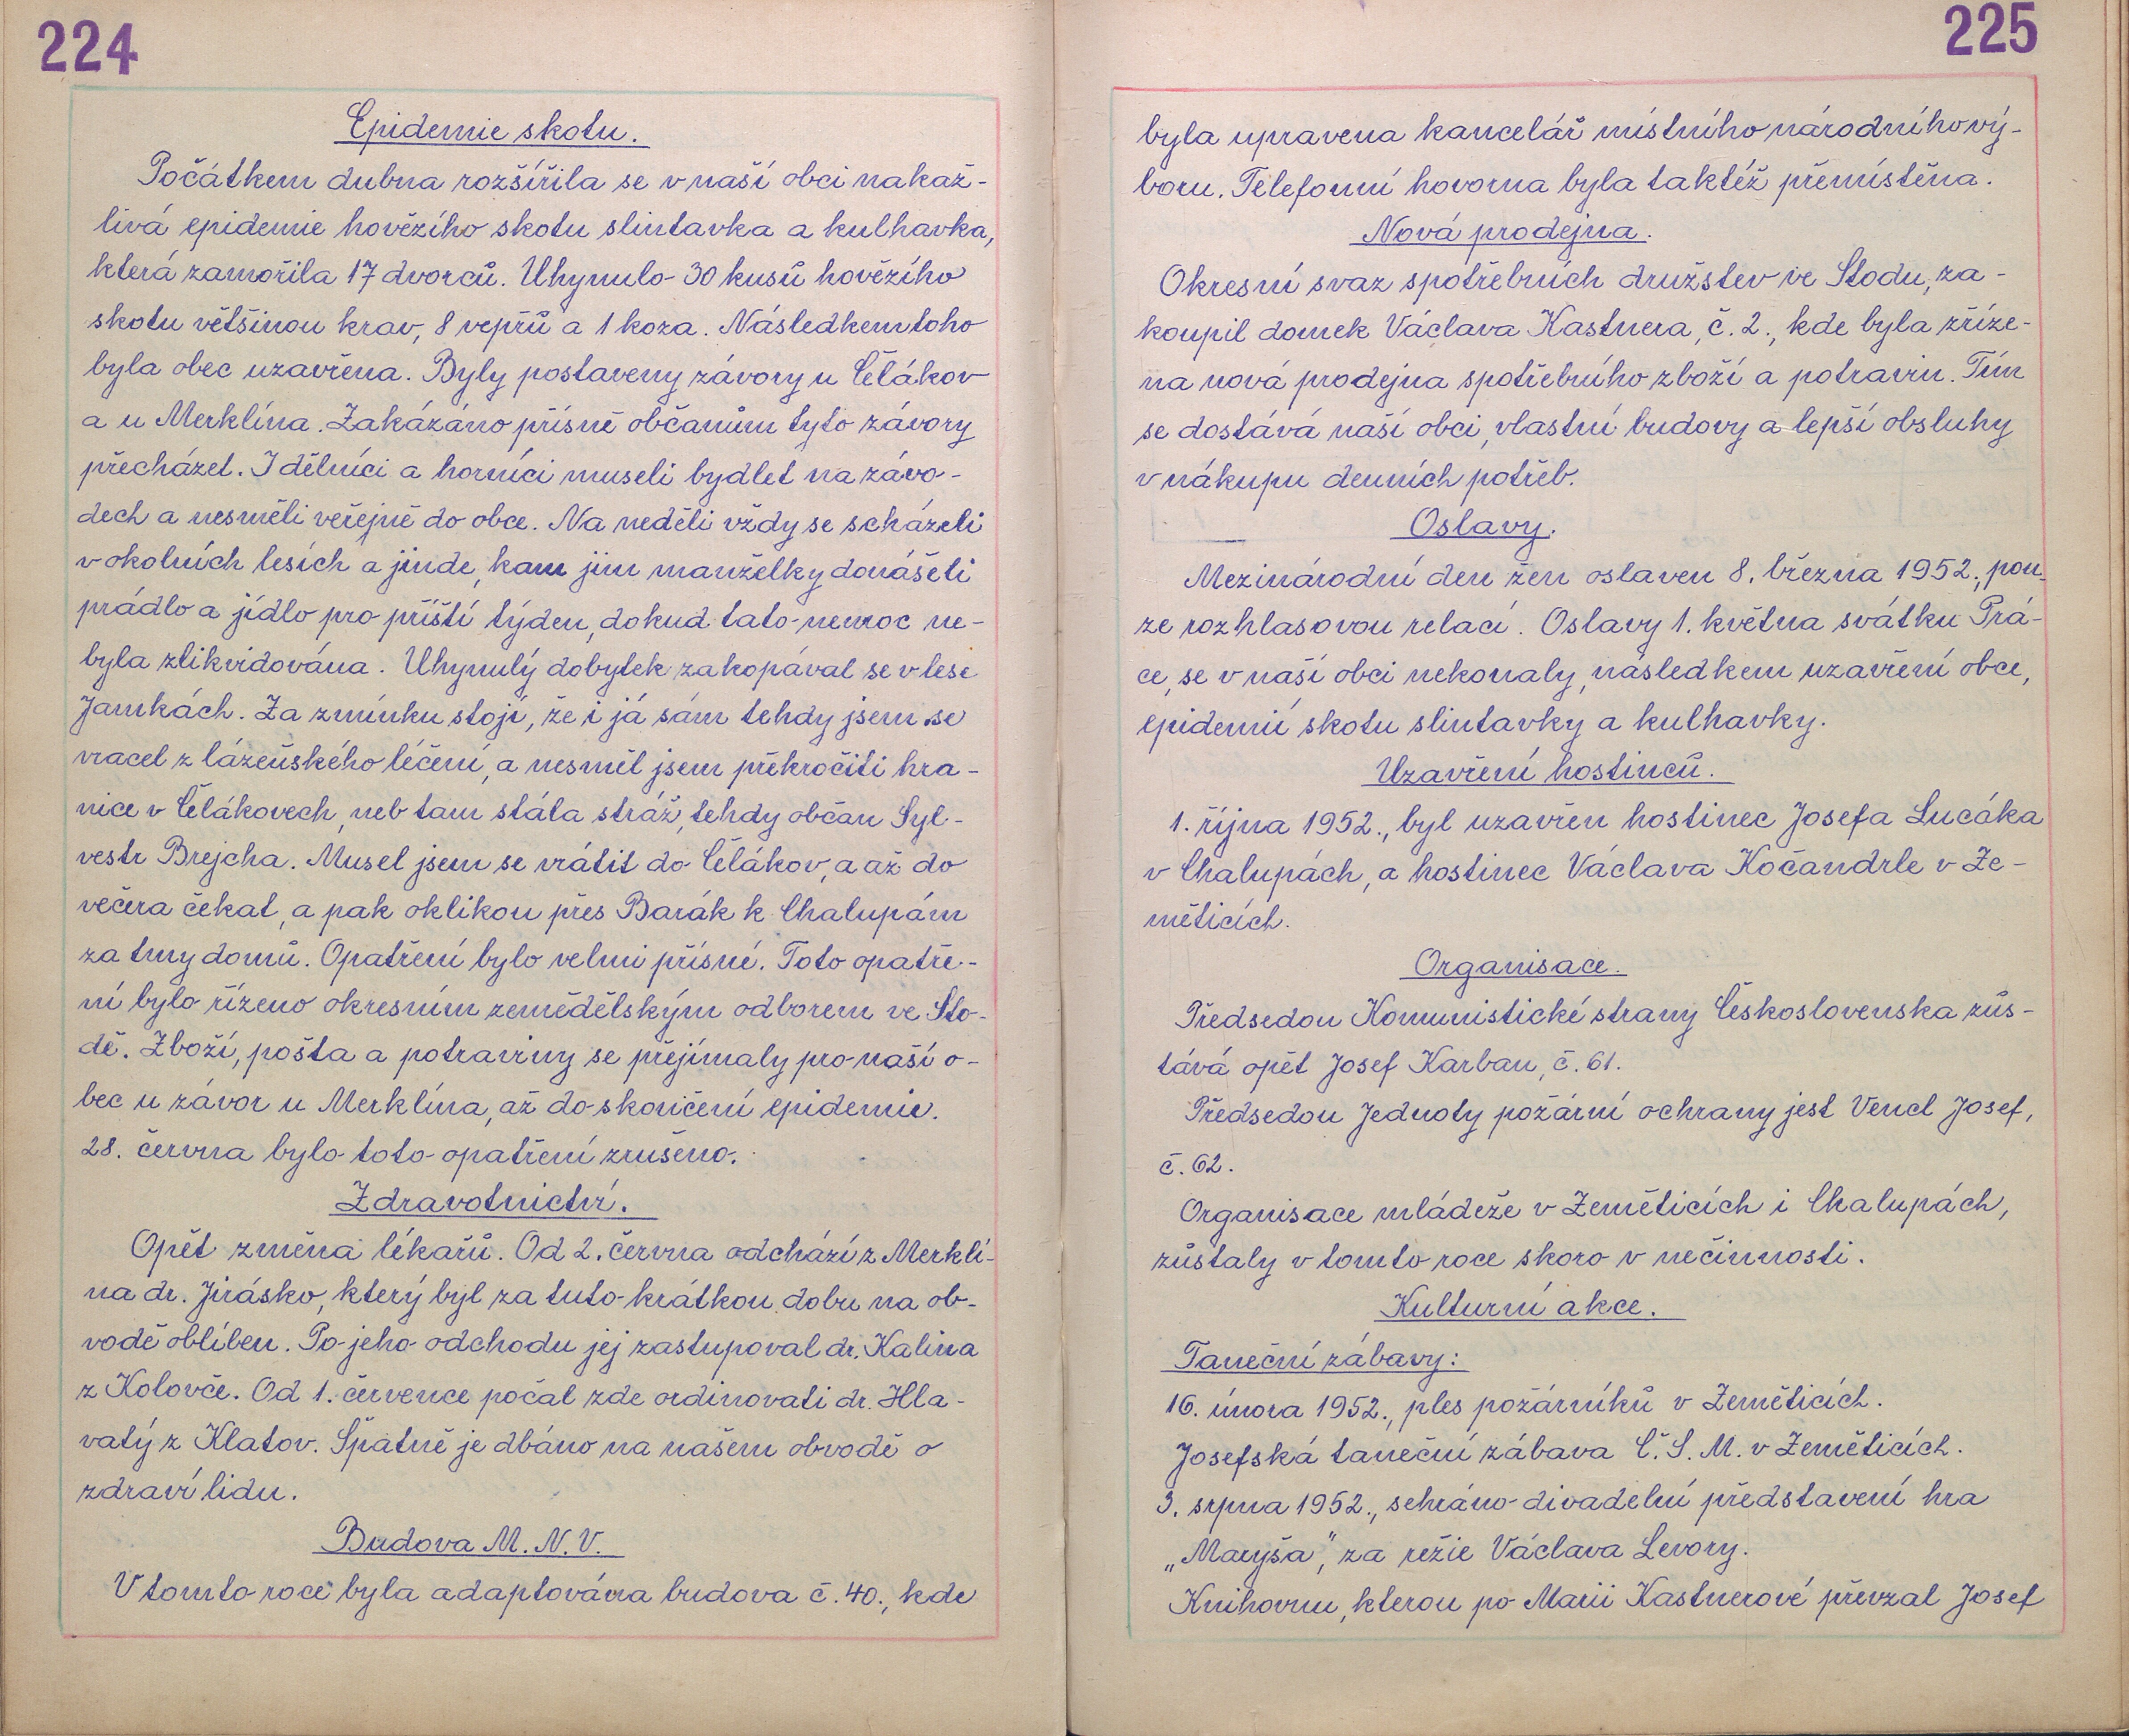 224
Epidemie skotu.
Počátkem dubna rozšířila se v naší obci nakaž-
livá epidemie hovězího skotu slintavka a kulhavka,
která zamořila 17 dvorců. Uhynulo 30 kusů hovězího
skotu většinou krav, 8 vepřů a 1 koza. Následkem toho
byla obec uzavřena. Byly postaveny závory u Čelákov
a u Merklína. Zakázáno přísně občanům tyto závory
přecházet. I dělníci a horníci museli bydlet na závo-
dech a nesměli veřejně do obce. Na neděli vždy se scházeli
v okolních lesích a jinde, kam jim manželky donášeli
prádlo a jídlo pro příští týden, dokud tato nemoc ne-
byla zlikvidována. Uhynulý dobytek zakopával se v lese
Jamkách. Za zmínku stojí, že i já sám tehdy jsem se
vracel z lázeňského léčení, a nesměl jsem překročiti hra-
nice v Čelákovech, neb tam stála stráž, tehdy občan Syl-
vestr Brejcha. Musel jsem se vrátit do Čelákov, a až do
večera čekat, a pak oklikou přes Barák k Chalupám
za tmy domů. Opatření bylo velmi přísné. Toto opatře-
ní bylo řízeno okresním zemědělským odborem ve Sto-
dě. Zboží, pošta a potraviny se přejímaly pro naší o-
bec u závor u Merklína, až do skončení epidemie.
28. června bylo toto opatření zrušeno.
Zdravotnictví.
Opět změna lékařů. Od 2. června odchází z Merklí-
na dr. Jirásko, který byl za tuto krátkou dobu na ob-
vodě oblíben. Po jeho odchodu jej zastupoval dr. Kalina
z Kolovče. Od 1. července počal zde ordinovati dr. Hla-
vatý z Klatov. Špatně je dbáno na našem obvodě o
zdraví lidu.
Budova M. N. V.
V tomto roce byla adaptována budova č. 40., kde
225
byla upravena kancelář místního národního vý-
boru. Telefonní hovorna byla taktéž přemístěna.
Nová prodejna.
Okresní svaz spotřebních družstev ve Stodu, za-
koupil domek Václava Kastnera, č. 2., kde byla zříze-
na nová prodejna spotřebního zboží a potravin. Tím
se dostává naší obci, vlastní budovy a lepší obsluhy
v nákupu denních potřeb.
Oslavy.
Mezinárodní den žen oslaven 8. března 1952., pou-
ze rozhlasovou relací. Oslavy 1. května svátku Prá-
ce, se v naší obci nekonaly, následkem uzavření obce,
epidemií skotu slintavky a kulhavky.
Uzavření hostinců.
1. října 1952., byl uzavřen hostinec Josefa Lucáka
v Chalupách, a hostinec Václava Kočandrle v Ze-
měticích.
Organisace.
Předsedou Komunistické strany Československa zůs-
tává opět Josef Karban, č. 61.
Předsedou Jednoty požární ochrany jest Vencl Josef,
č. 62.
Organisace mládeže v Zeměticích i Chalupách,
zůstaly v tomto roce skoro v nečinnosti.
Kulturní akce.
Taneční zábavy:
16. února 1952., ples požárníků v Zeměticích.
Josefská taneční zábava Č. S. M. v Zeměticích.
3. srpna 1952., sehráno divadelní představení hra
„Maryša", za režie Václava Levory.
Knihovnu, kterou po Marii Kastnerové převzal Josef